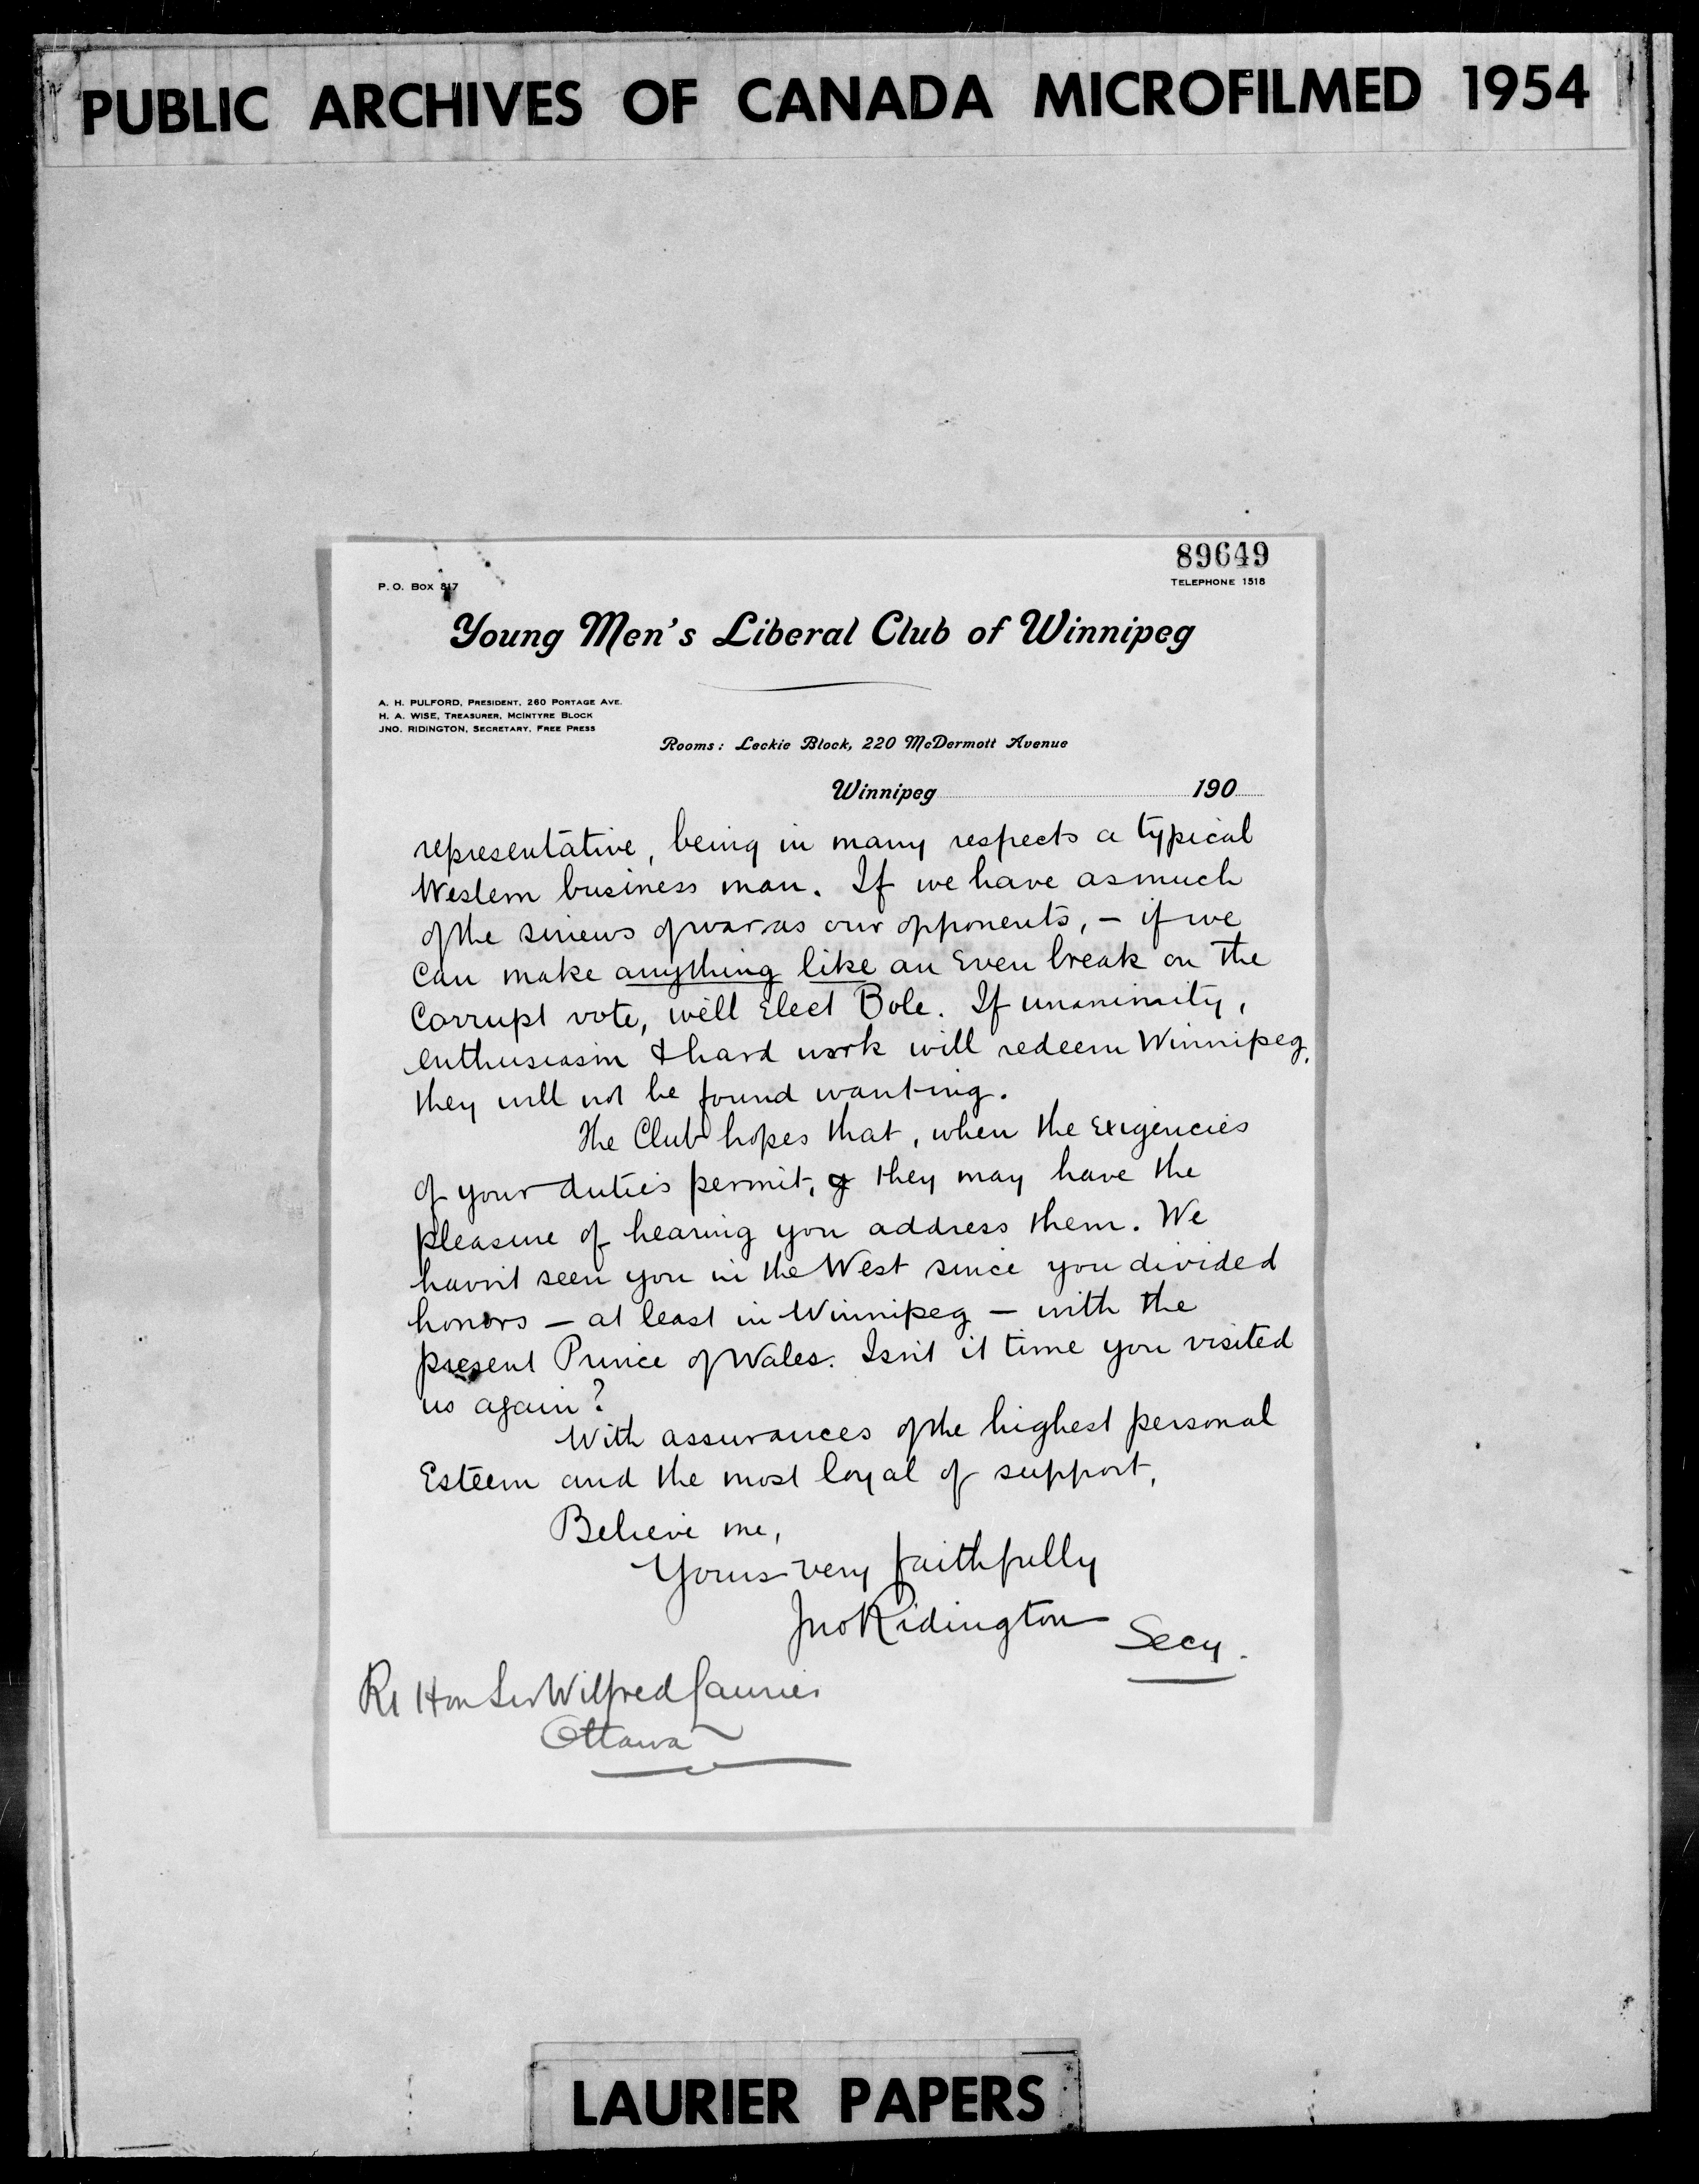 PUBLIC ARCHIVES OF CANADA MICROFILMED 1954
89649
P. O. Box 817
TELEPHONE 1518
Young Men's Liberal Club of Winnipeg
A. H. PULFORD, PRESIDENT, 260 PORTAGE AVE.
H. A. WISE, TREASURER, MCINTYRE BLOCK
JNO. RIDINGTON, SECRETARY, FREE PRESS
Rooms: Leckie Block, 220 McDermott Avenue
Winnipeg 190
representative, being in many respects a typical
Western business man. If we have as much
of the sinews of war as our opponents, – if we
can make anything like an Even break on the
Corrupt vote, we'll Elect Bole. If unanimity,
enthusiasm & hard work will redeem Winnipeg,
they will not be found wanting.
The Club hopes that, when the Exigencies
of your duties permit, they may have the
pleasure of hearing you address them. We
havn't seen you in the West since you divided
honors – at least in Winnipeg – with the
present Prince of Wales. Isn't it time you visited
us again?
With assurances of the highest personal
Esteem and the most loyal of support,
Believe me,
Yours very faithfully
Jno Ridington
Secy.
Rt Hon Sir Wilfred Laurier
Ottawa
LAURIER PAPERS